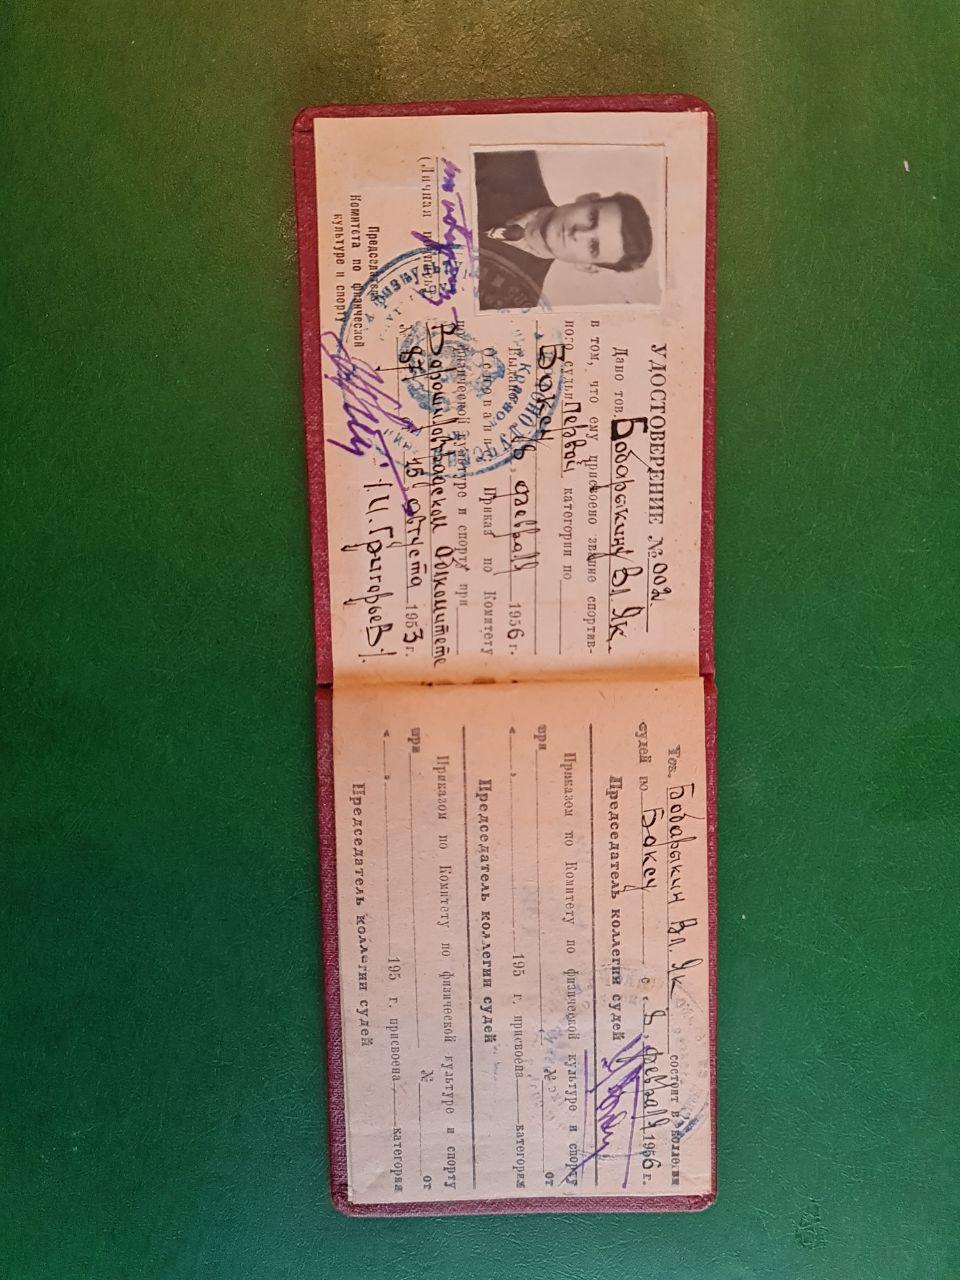 УДОСТОВЕРЕНИЕ № 002.
Дано тов. Бобарыкину Вл. Як.
в том, что ему присвоено звание спортив-
ного судьи Первой категории по
Боксу
Выдано 8, февраля 1956 г.
Основание: Приказ по Комитету
по физической культуре и спорту при
Ворошиловградском Облкомитете
№ 87, 15, августа 1953 г.
(Личная подпись)
Председатель
Комитета по физической
культуре и спорту
/И. Григорьев/.
Тов. Бобарыкин Вл. Як состоит в коллегии
судей по Боксу с 8, февраля 1956 г.
Председатель коллегии судей
Приказом по Комитету по физической культуре и спорту
при № от
« , 195 г. присвоена категория
Председатель коллегии судей
Приказом по Комитету по физической культуре и спорту
при № от
« , 195 г. присвоена категория
Председатель коллегии судей